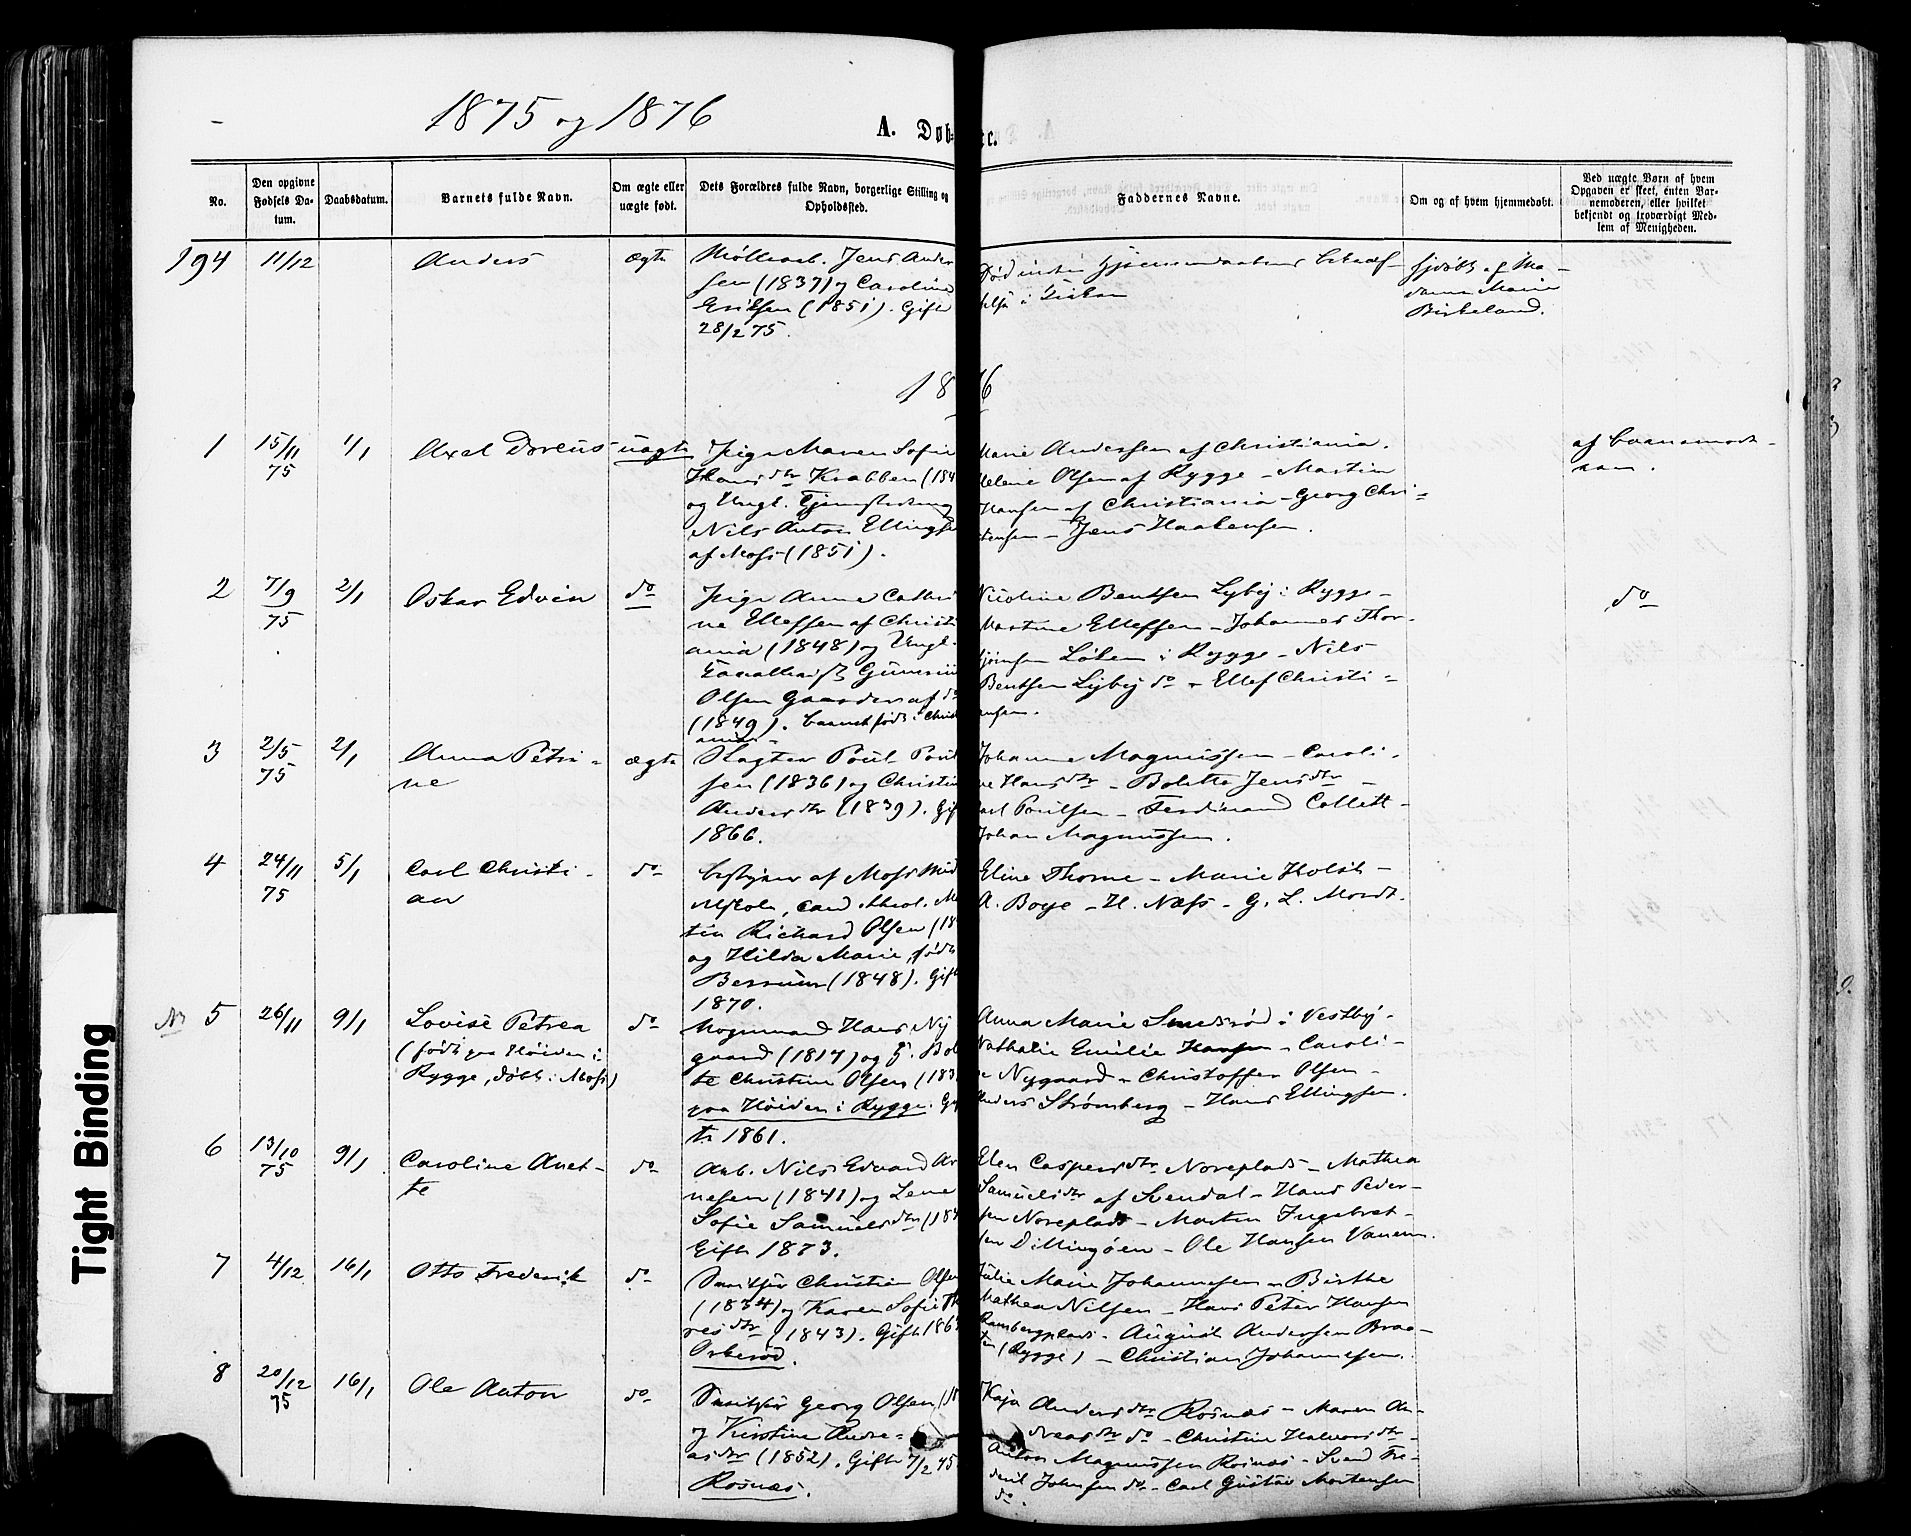 1875 og 1876
A. Døb
c.
No.
Den opgivne Fødsels Datum.
Daabsdatum.
Barnets fulde Navn.
Om ægte eller uægte født.
Dets Forældres fulde Navn, borgerlige Stilling og Opholdssted.
Faddernes Navne.
Om og af hvem hjemmedøbt.
Ved uægte Børn af hvem Opgaven er skeet, enten Barnemoderen, eller hvilket bekjendt og troværdigt Medlem af Menigheden.
194 11/12 Anders ægte
Møllearb. Jens Ander
sen (1837) og Caroline
Eriksen (1851). Gift
28/2 75.
Død inden Hjemmedaabens bekræf-
telse i Kirken
hjdøbt af Ma-
dame Marie
Birkeland.
1876
1 15/11 75 1/1 Axel Doreus uægte
Pige Maren Sofie
Hansdtr Krabben (184
og Ungk. Tjenestedreng
Nils Anton Ellings
af Moss (1851).
Marie Andersen af Christiania.
Helene Olsen af Rygge - Martin
Hansen af Christiania - Georg Chri-
stensen - Jens Haakensen.
af Barnemode-
ren.
2 7/9 75 2/1 Oskar Edvin do
Pige Anne Cathri
ne Ellefsen af Christi
ania (1848) og Ungk.
Olsen Gaarder af do
(1849). barnet født i Christ
ania
Nicoline Bentsen Lyby i Rygge -
Martine Ellefsen - Johannes Thor-
bjørnsen Løken i Rygge - Nils
Bentsen Lyby do - Ellef Christi-
ansen.
do
3 2/5 75 2/1 Anna Petri-
ne
ægte
Slagter Poul Poul
sen (1836) og Christin
Andersdtr (1839). Gif
1866.
Johanne Magnussen - Caroli-
ne Hansdtr - Bolette Jensdtr -
Carl Poulsen - Ferdinand Collett -
Johan Magnussen.
4 24/11 75 5/1 Carl Christi-
an
do
Bestyrer af Moss Mid
delskole, cand. theol. Ma
tin Richard Olsen (18
og Hilda Marie, født
Berrum (1848). Gift
1870.
Eline Thorne - Marie Holst -
A. Boye - H. Næss - G. L. Mordt.
No 5 26/11 9/1 Lovise Petrea
(født paa Høiden i
Rygge, døbt i Moss)
do
Vognmand Hans Ny
gaard (1817) og H. Bol
te Christine Olsen (183
paa Høiden i Rygge. Gif
te 1861.
Anna Marie Smedsrød i Vestby -
Nathalie Emilie Hansen - Caroli-
ne Nygaard - Christoffer Olsen -
Anders Strømberg - Hans Ellingsen.
6 13/10 75 9/1 Caroline Anet-
te
do
Arb. Nils Edvard Ar
nesen (1841) og Lene
Sofie Samuelsdtr (184
Gift 1873.
Elen Caspersdtr Noreplads - Mathea
Samuelsdtr af Svendal - Hans Peder-
sen Noreplads - Morten Ingebret-
sen Dillingøen - Ole Hansen Vanem.
7 4/12 16/1 Otto Frederik do
Christian Olsen
(1834) og Karen Sofie Th
resdtr (1843). Gift 186
Orkerød.
Julie Marie Johannesen - Birthe
Mathea Nilsen - Hans Peter Hansen
Rambergplads - August Andersen Braa-
ten (Rygge) - Christian Johannesen.
8 20/12 75 16/1 Ole Anton do
Georg Olsen (18
og Kirstine Andre-
asdtr (1852). Gift 7/2 75
Rosnæs.
Kaja Andersdtr Rosnæs - Maren An-
dreasdtr do - Christine Halvorsdtr -
Anton Magnussen Rosnæs - Svend Fre-
derik Johnsen do - Carl Gustav Mortensen
do.
Tight Binding